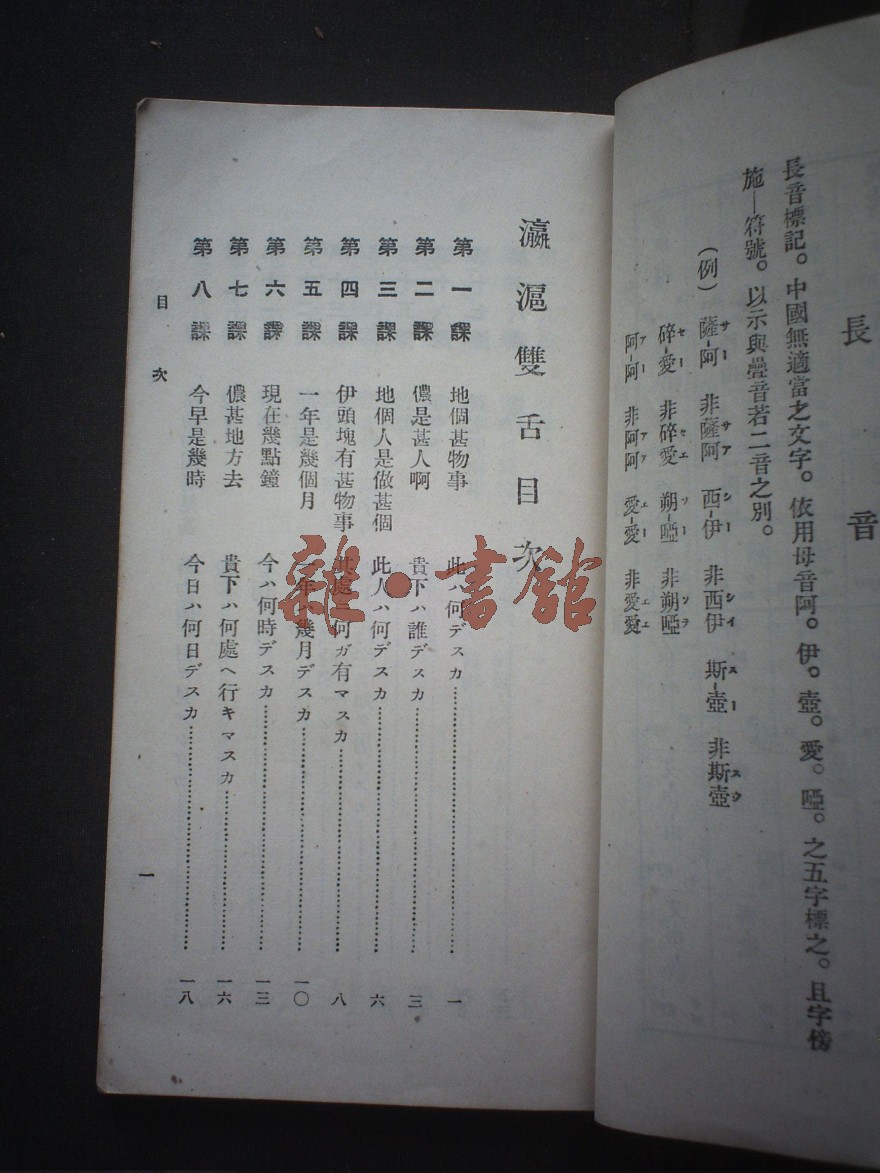 長音
長音標記。中國無適當之文字。依用母音阿。伊。壺。愛。啞。之五字標之。且字傍
施—符號。以示與疊音若二音之別。
(例) 薩-阿 非薩阿 西-伊 非西伊 斯-壺 非斯壺
サー サア シー シイ スー スウ
碎-愛 非碎愛 朔-啞 非朔啞
セー セエ ソー ソヲ
阿-阿 非阿阿 愛-愛 非愛愛
アー アア エー エエ
瀛滬雙舌目次
第一課 地個甚物事 此ハ何デスカ 一
第二課 儂是甚人啊 貴下ハ誰デスカ 三
第三課 地個人是做甚個 此人ハ何デスカ 六
第四課 伊頭塊有甚物事 處ニ何ガ有マスカ 八
第五課 一年是幾個月 一年ハ幾月デスカ 一〇
第六課 現在幾點鐘 今ハ何時デスカ 一三
第七課 儂甚地方去 貴下ハ何處ヘ行キマスカ 一六
第八課 今早是幾時 今日ハ何日デスカ 一八
目次
一
雜·書館